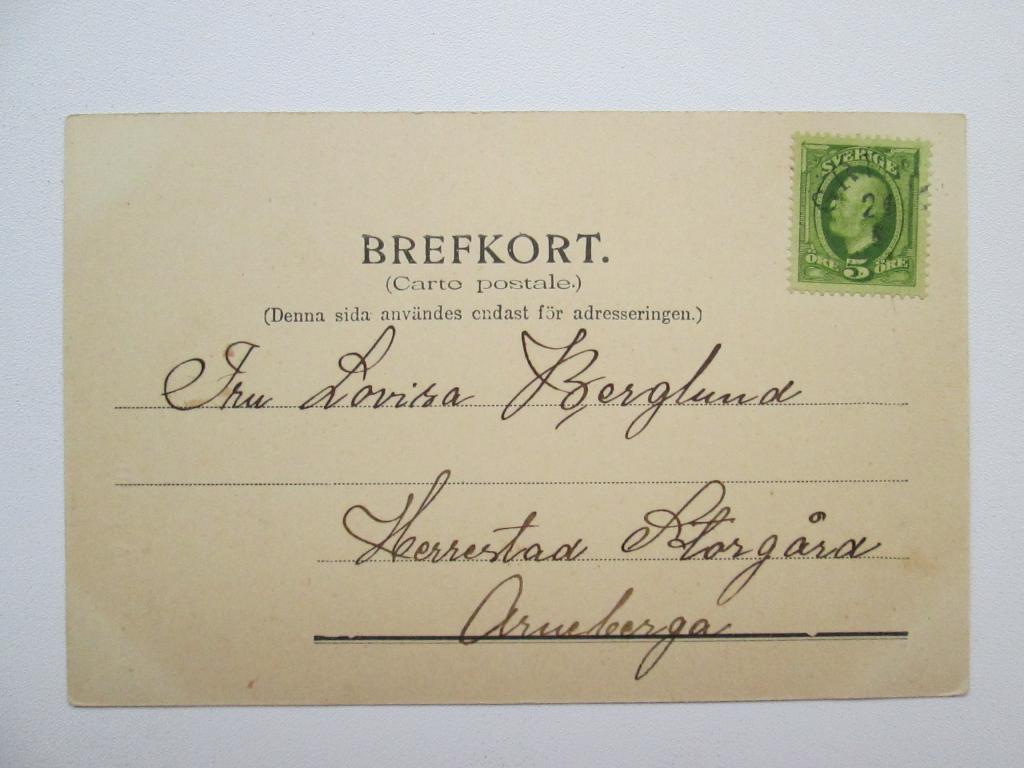 SVERIGE
2
ÖRE 5 ÖRE
BREFKORT.
(Carte postale.)
(Denna sida användes endast för adresseringen.)
Fru Lovisa Berglund
Herrestad Storgård
Arneberga